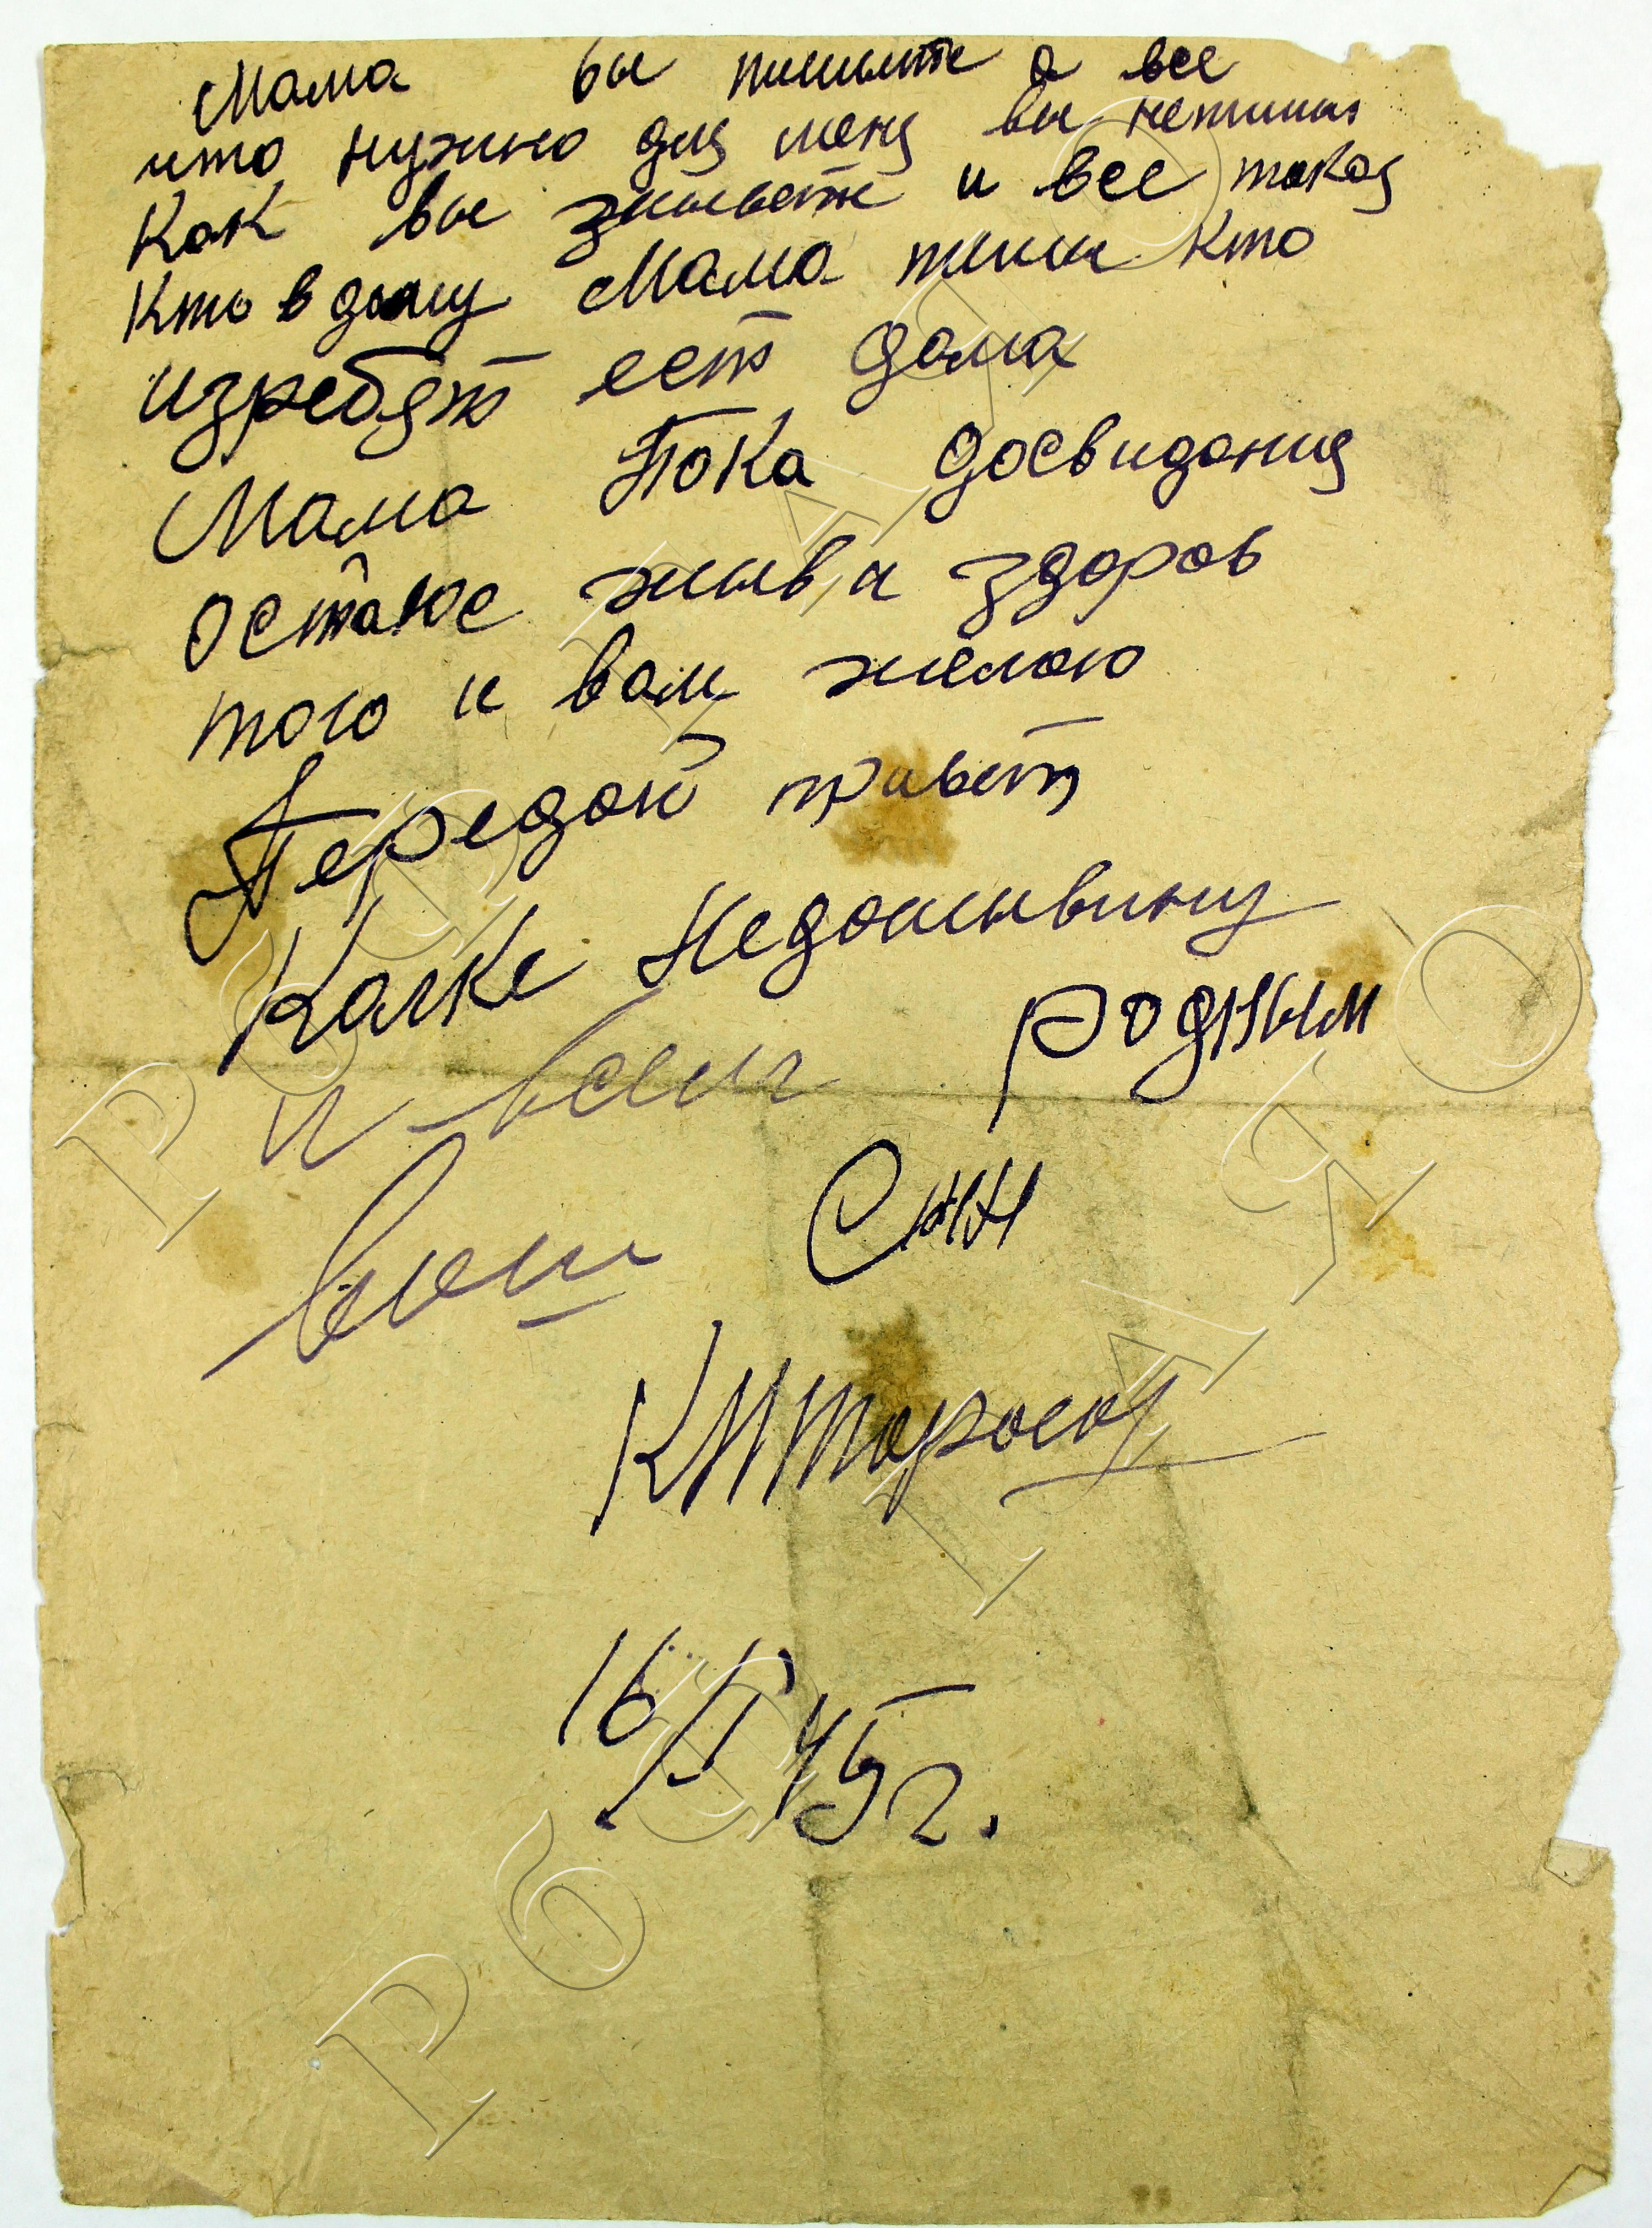 Мама вы пишите а все
что нужно для меня вы непиши
Как вы живете и все такоя
Кто в дому Мама пиши кто
изребят ест дома
Мама Пока досвидания
остаюс жыв и здоров
того и вам желаю
Передай привет
Кольке Недошывину
и всем родным
ваш Сын
16/II 45 г.